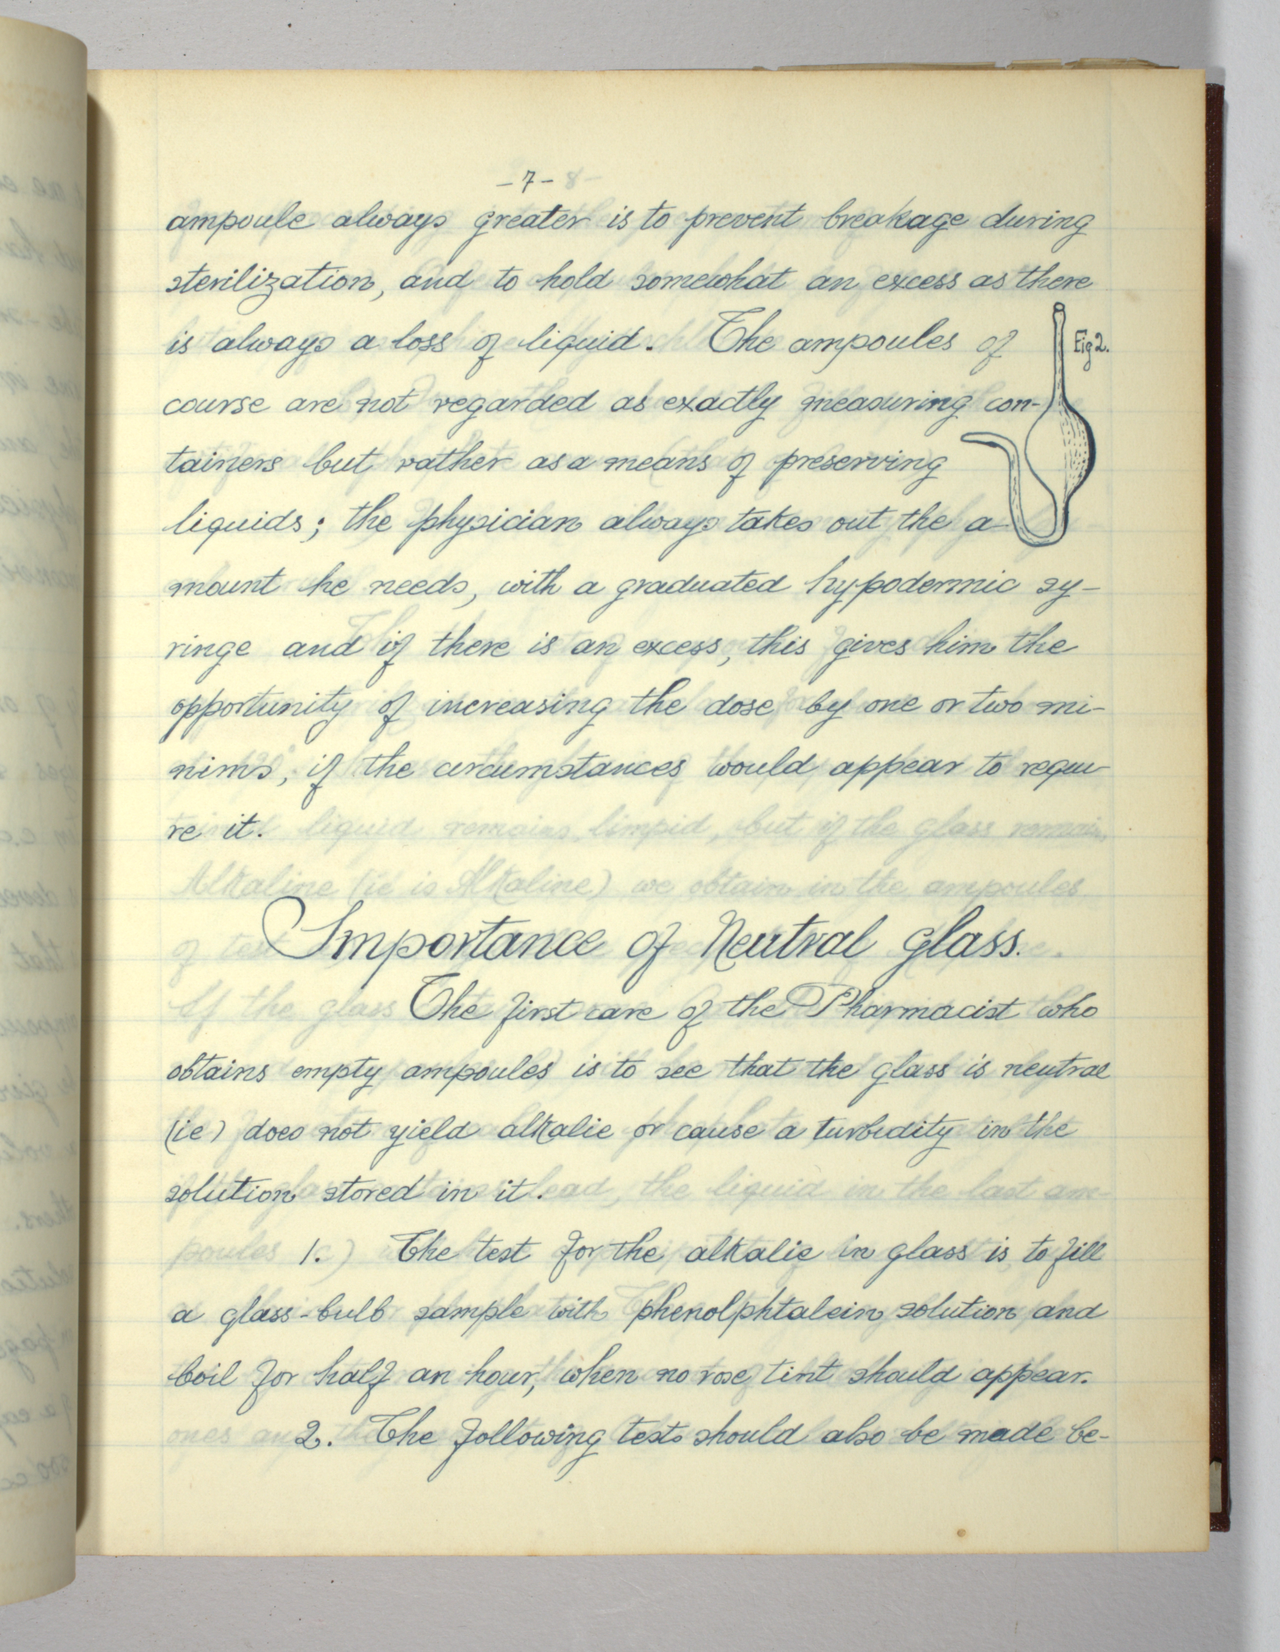 -7-
ampoule always greater is to prevent breakage during
sterilization, and to hold somewhat an excess as there
is always a loss of liquid. The ampoules of
Fig 2.
course are not regarded as exactly measuring con-
tainers but rather as a means of preserving
liquids; the physician always takes out the a-
mount he needs, with a graduated hypodermic sy-
ringe and if there is an excess, this gives him the
opportunity of increasing the dose by one or two mi-
nims, if the circumstances would appear to requi-
re it.
Importance of Neutral glass.
The first care of the Pharmacist who
obtains empty ampoules is to see that the glass is neutral
(ie) does not yield alkalie or cause a turbidity in the
solution stored in it.
1. The test for the alkalie in glass is to fill
a glass-bulb sample with phenolphtalein solution and
boil for half an hour, when no rose tint should appear.
2. The following tests should also be made be-